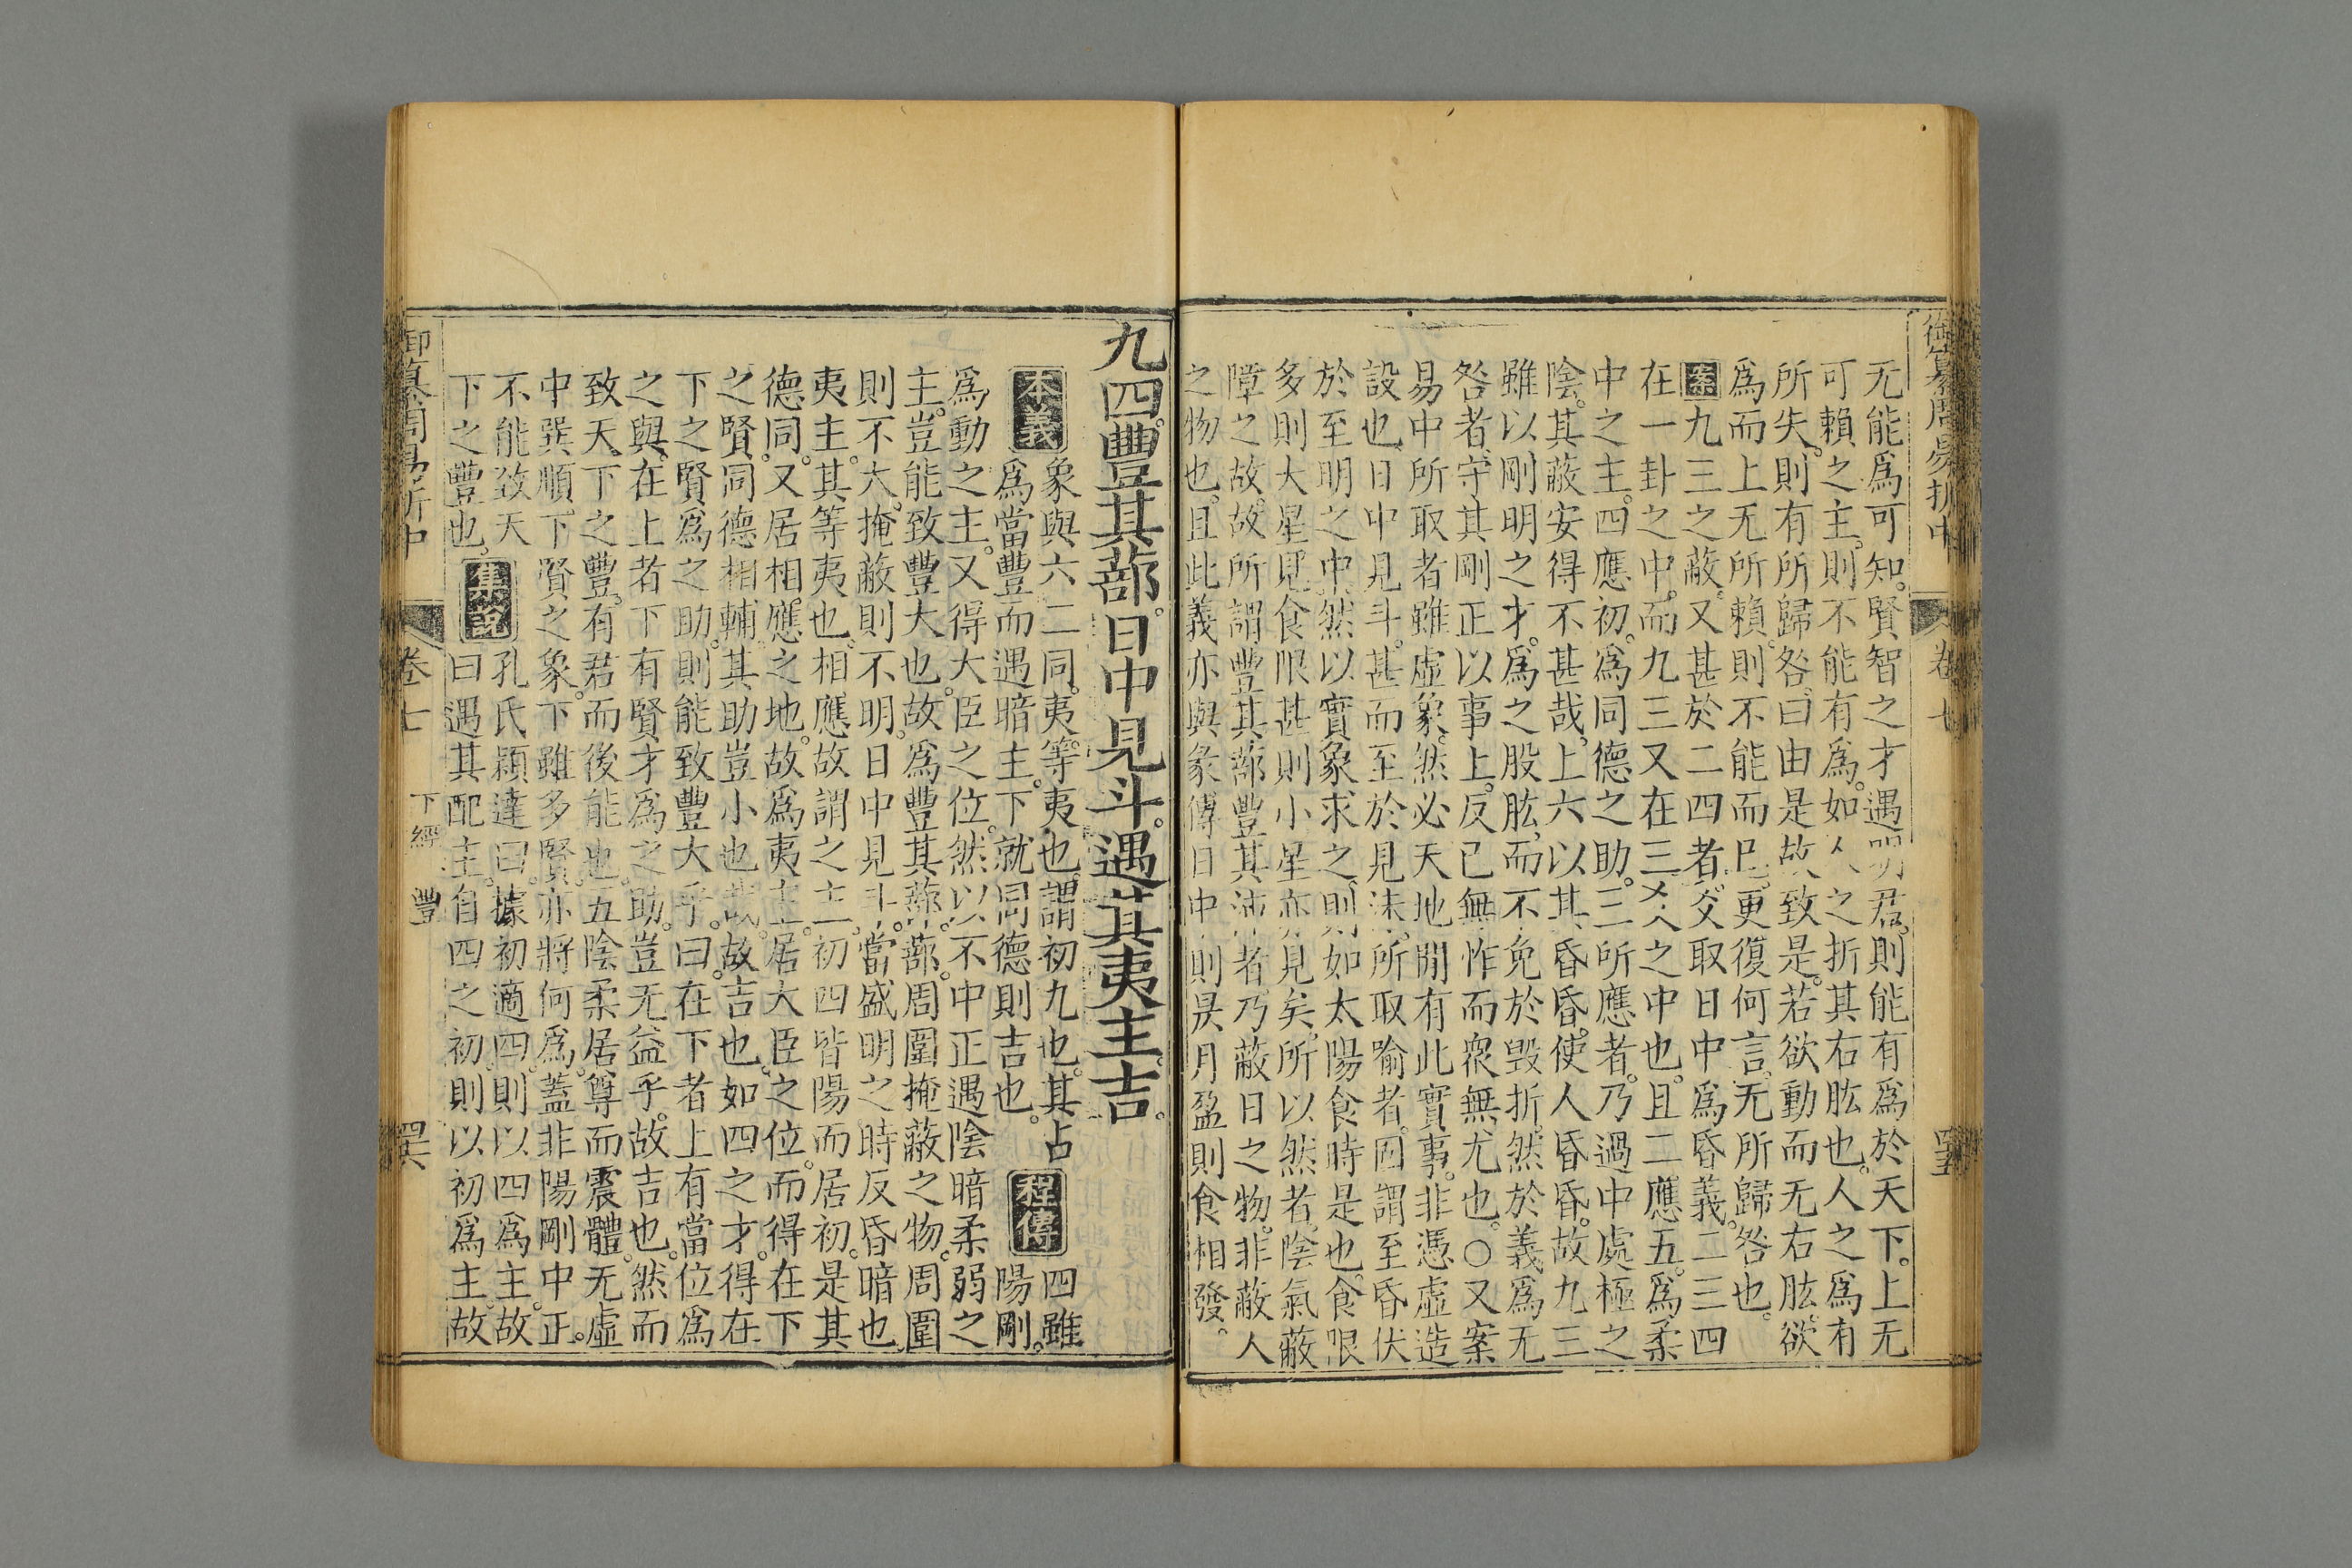 御纂周易折中
卷七
无能爲可知。賢智之才遇明君。則能有爲於天下。上无
可賴之主。則不能有爲。如人之折其右肱也。人之爲有
所失。則有所歸咎。曰由是故致是。若欲動而无右肱。欲
爲而上无所賴。則不能而已。更復何言。无所歸咎也。
案九三之蔽。又甚於二四者。爻取日中爲昏義。二三四
在一卦之中。而九三又在三爻之中也。且二應五。爲柔
中之主。四應初。爲同德之助。三所應者。乃過中處極之
陰。其蔽安得不甚哉。上六以其昏昏。使人昏昏。故九三
雖以剛明之才。爲之股肱。而不免於毀折。然於義爲无
咎者。守其剛正以事上。反己無怍而衆無尤也。○又案
易中所取者雖虛象。然必天地閒有此實事。非憑虛造
設也。日中見斗。甚而至於見沬。所取喻者。固謂至昏伏
於至明之中。然以實象求之。則如太陽食時是也。食限
多則大星見。食限甚則小星亦見矣。所以然者。陰氣蔽
障之故。故所謂豐其蔀豐其沛者。乃蔽日之物。非蔽人
之物也。且此義亦與彖傳日中則昃月盈則食相發。
九四豐其蔀。日中見斗。遇其夷主。吉。
本義
象與六二同。夷。等夷也。謂初九也。其占
爲當豐而遇暗主。下就同德則吉也。
程傳
四雖
陽剛。
爲動之主。又得大臣之位。然以不中正遇陰暗柔弱之
主。豈能致豐大也。故爲豐其蔀。蔀。周圍掩蔽之物。周圍
則不大。掩蔽則不明。日中見斗。當盛明之時反昏暗也。
夷主。其等夷也。相應故謂之主。初四皆陽而居初。是其
德同。又居相應之地。故爲夷主。居大臣之位。而得在下
之賢。同德相輔。其助豈小也哉。故吉也。如四之才。得在
下之賢爲之助。則能致豐大乎。曰。在下者上有當位爲
之與。在上者下有賢才爲之助。豈无益乎。故吉也。然而
致天下之豐。有君而後能也。五陰柔居尊而震體。无虛
中巽順。下賢之象。下雖多賢。亦將何爲。蓋非陽剛中正。
不能致天
下之豐也。
集說
孔氏穎達曰。據初適四。則以四爲主。故
曰遇其配主。自四之初。則以初爲主。故
御纂周易折中
卷七
下經 豐